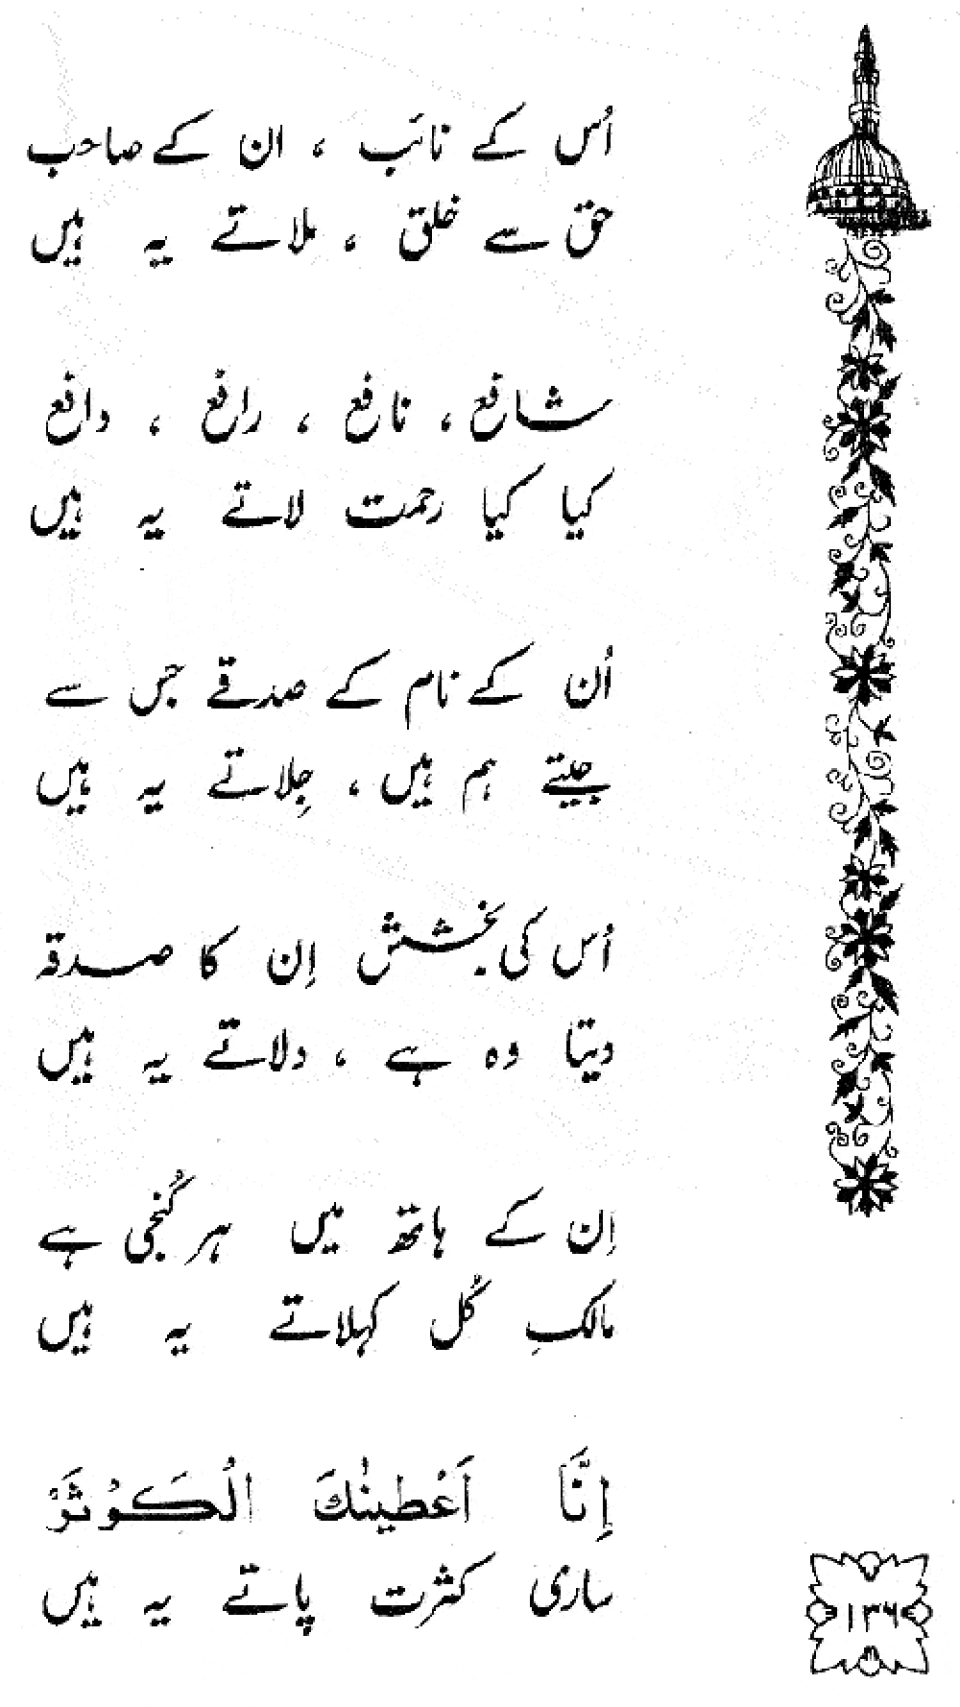 اُس کے نائب ، ان کے صاحب
حق سے خلق ، ملاتے یہ ہیں
شافع ، نافع ، رافع ، دافع
کیا کیا رحمت لاتے یہ ہیں
اُن کے نام کے صدقے جس سے
جیتے ہم ہیں ، جِلاتے یہ ہیں
اُس کی بخشش اِن کا صدقہ
دیتا وہ ہے ، دلاتے یہ ہیں
اِن کے ہاتھ میں ہر کُنجی ہے
مالکِ کُل کہلاتے یہ ہیں
اِنَّا اَعْطَینٰكَ الْكَوْثَرْ
ساری کثرت پاتے یہ ہیں
۱۳۶